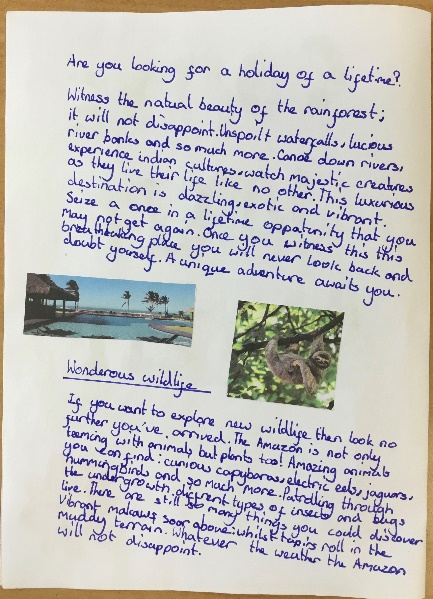 Are you looking for a holiday of a lifetime?
Witness the natural beauty of the rainforest;
it will not disappoint. Unspoilt waterfalls, lucious
river banks and so much more. Canoe down rivers,
experience indian cultures, watch majestic creatures
as they live their life like no other. This luxurious
destination is dazzling, exotic and vibrant.
Seize a once in a lifetime oppatunity that you
may not get again. Once you witness this this
breathtaking place you will never look back and
doubt yourself. A unique adventure awaits you.
Wonderous wildlife
If you want to explore new wildlife then look no
further you've arrived. The Amazon is not only
teeming with animals but plants too! Amazing animals
you can find: curious capyboras, electric eels, jaguors,
hummingbirds and so much more. Patrolling through
the undergrowth different types of insects and bugs
live. There are still so many things you could discover
Vibrant makaws soar above: whilst tapirs roll in the
muddy terrain. Whatever the weather the Amazon
will not disappoint.